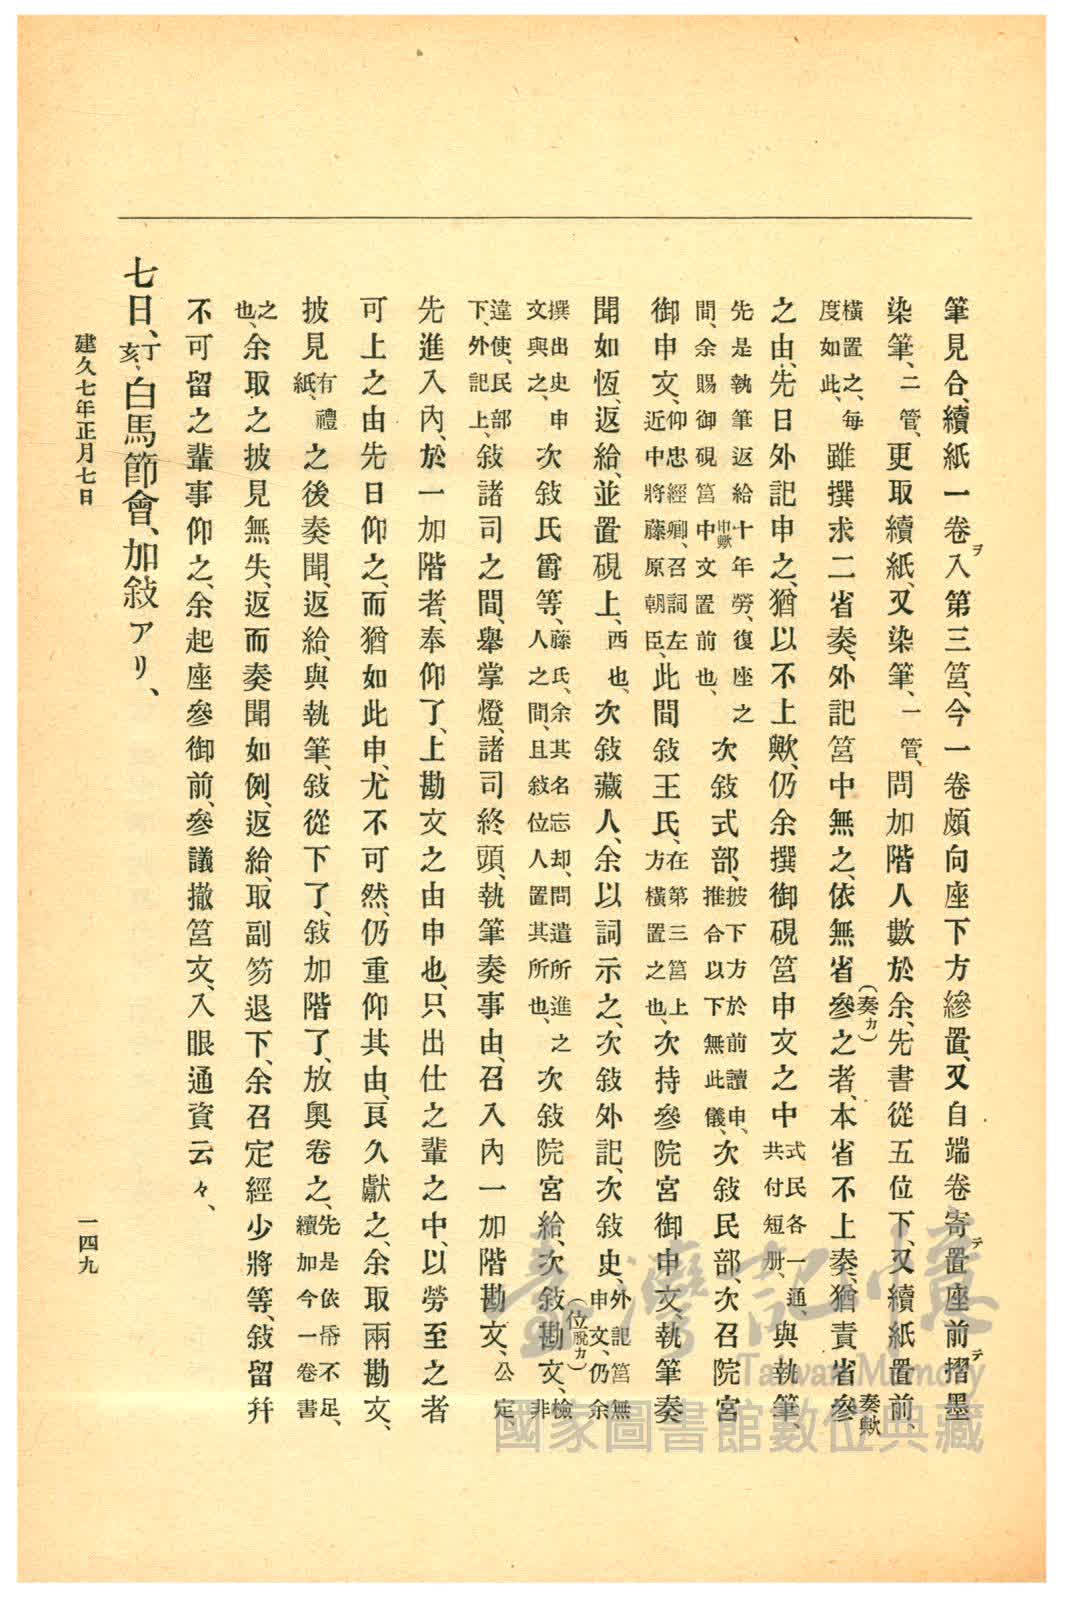 筆見合、續紙一卷ヲ入第三筥、今一卷頗向座下方縿置、又自端卷寄テ置座前、摺テ墨
染筆、二管、更取續紙、又染筆、一管、問加階人數於余、先書從五位下、又續紙置前、
橫置之、每度如此、雖撰求二省奏、外記筥中無之、依無省參(奏カ)之者、本省不上奏、猶責省參奏歟
之由、先日外記申之、猶以不上歟、仍余撰御硯筥申文之中式民各一通、共付短册、與執筆、
先是執筆返給十年勞、復座之間、余賜御硯筥中申歟文置前也、次敍式部、披下方於前讀申、推合以下無此儀、次敍民部、次召院宮
御申文、仰忠經卿、召詞左近中將藤原朝臣、此間敍王氏、在第三筥上方橫置之也、次持參院宮御申文、執筆奏
聞如恆、返給、並置硯上、西也、次敍藏人、余以詞示之、次敍外記、次敍史、外記筥無申文、仍余
撰出史申文與之、次敍氏爵等、藤氏、余其名忘却、問遣所進之人之間、且敍位人置其所也、次敍院宮給、次敍(位脫カ)勘文、檢非
違使、民部下、外記上、敍諸司之間、擧掌燈、諸司終頭、執筆奏事由、召入內一加階勘文、公定
先進入內、於一加階者、奉仰了、上勘文之由申也、只出仕之輩之中、以勞至之者
可上之由先日仰之、而猶如此申、尤不可然、仍重仰其由、良久獻之、余取兩勘文、
披見有禮紙、之後奏聞、返給、與執筆、敍從下了、敍加階了、放奧卷之、先是依帋不足、續加今一卷書
之也、余取之披見無失、返而奏聞如例、返給、取副笏退下、余召定經少將等、敍留幷
不可留之輩事仰之、余起座參御前、參議撤筥文、入眼通資云々、
七日、丁亥、白馬節會、加敍アリ、
建久七年正月七日
一四九
臺灣記憶
Taiwan Memory
國家圖書館數位典藏